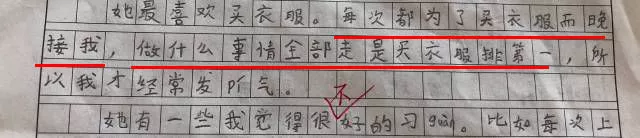 她最喜欢买衣服。每次都为了买衣服而晚
接我，做什么事情全部走是买衣服排第一，所
以我才经常发pí气。
不
她有一些我觉得很好的习guàn。比如每次上